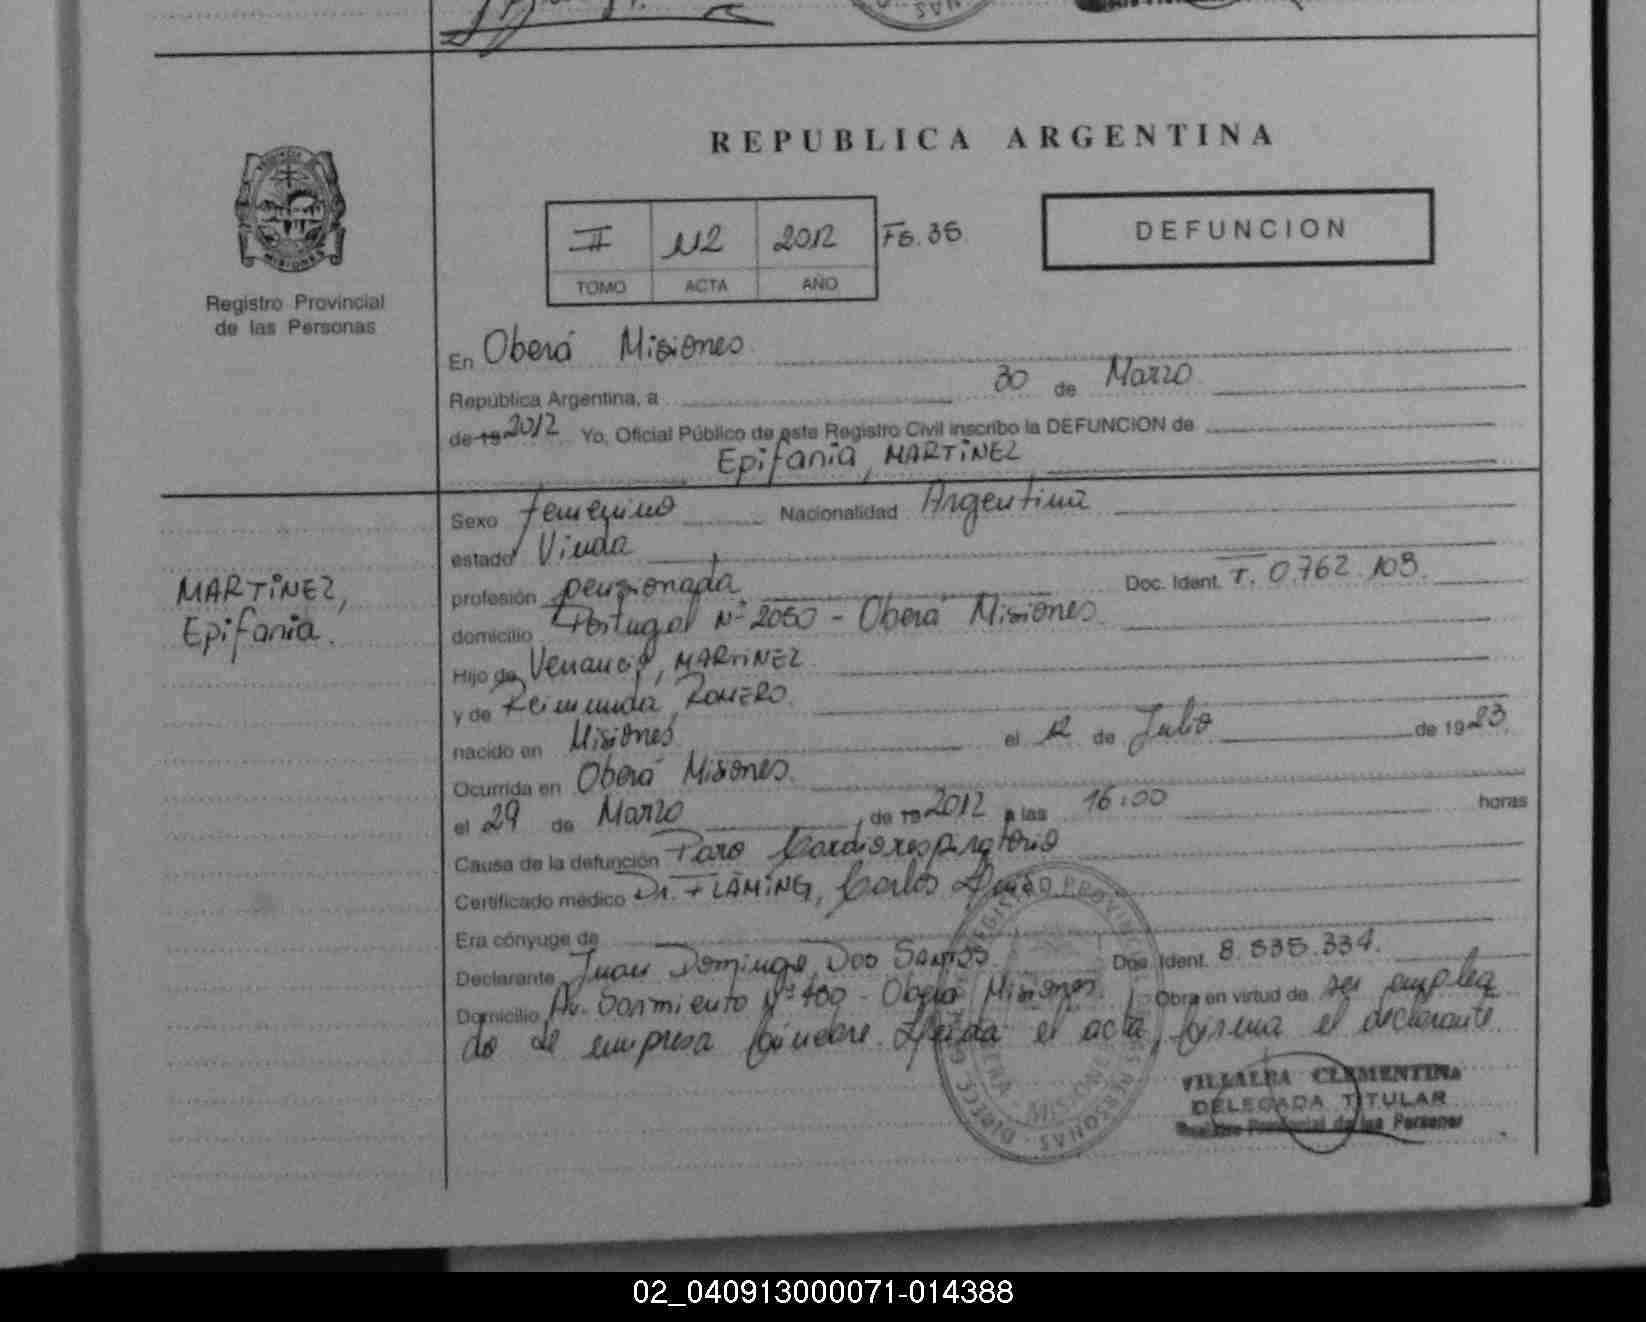 REPUBLICA ARGENTINA
II 112 2012 Fs. 36
TOMO ACTA AÑO
DEFUNCION
MISIONES
Registro Provincial
de las Personas
En Oberá Misiones
República Argentina, a 30 de Marzo
de 19 2012 Yo, Oficial Público de este Registro Civil inscribo la DEFUNCION de
Epifania, MARTINEZ
MARTINEZ,
Epifania.
Sexo femenino Nacionalidad Argentina
estado Viuda
profesión pensionada Doc. Ident. T. 0.762.103.
domicilio Portugal Nº 2050 - Oberá Misiones
Hijo de Venancio, MARTINEZ
y de Reimunda, ROMERO.
nacido en Misiones el 12 de Julio de 1923
Ocurrida en Oberá Misiones.
el 29 de Marzo de 19 2012 a las 16:00 horas
Causa de la defunción Paro Cardiorespiratorio
Certificado médico Dr. FLAMING, Carlos
Era cónyuge de
Declarante Juan Domingo, Dos Santos. Doc. Ident. 8.535.334.
Domicilio Av. Sarmiento Nº 400 - Oberá Misiones. Obra en virtud de ser emplea
do de empresa fúnebre. Leida el acta, firma el declarante.
VILLALBA CLEMENTINA
DELEGADA TITULAR
Registro Provincial de las Personas
02_040913000071-014388